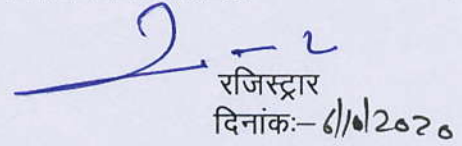 रजिस्ट्रार
दिनांकः– 6/10/2020